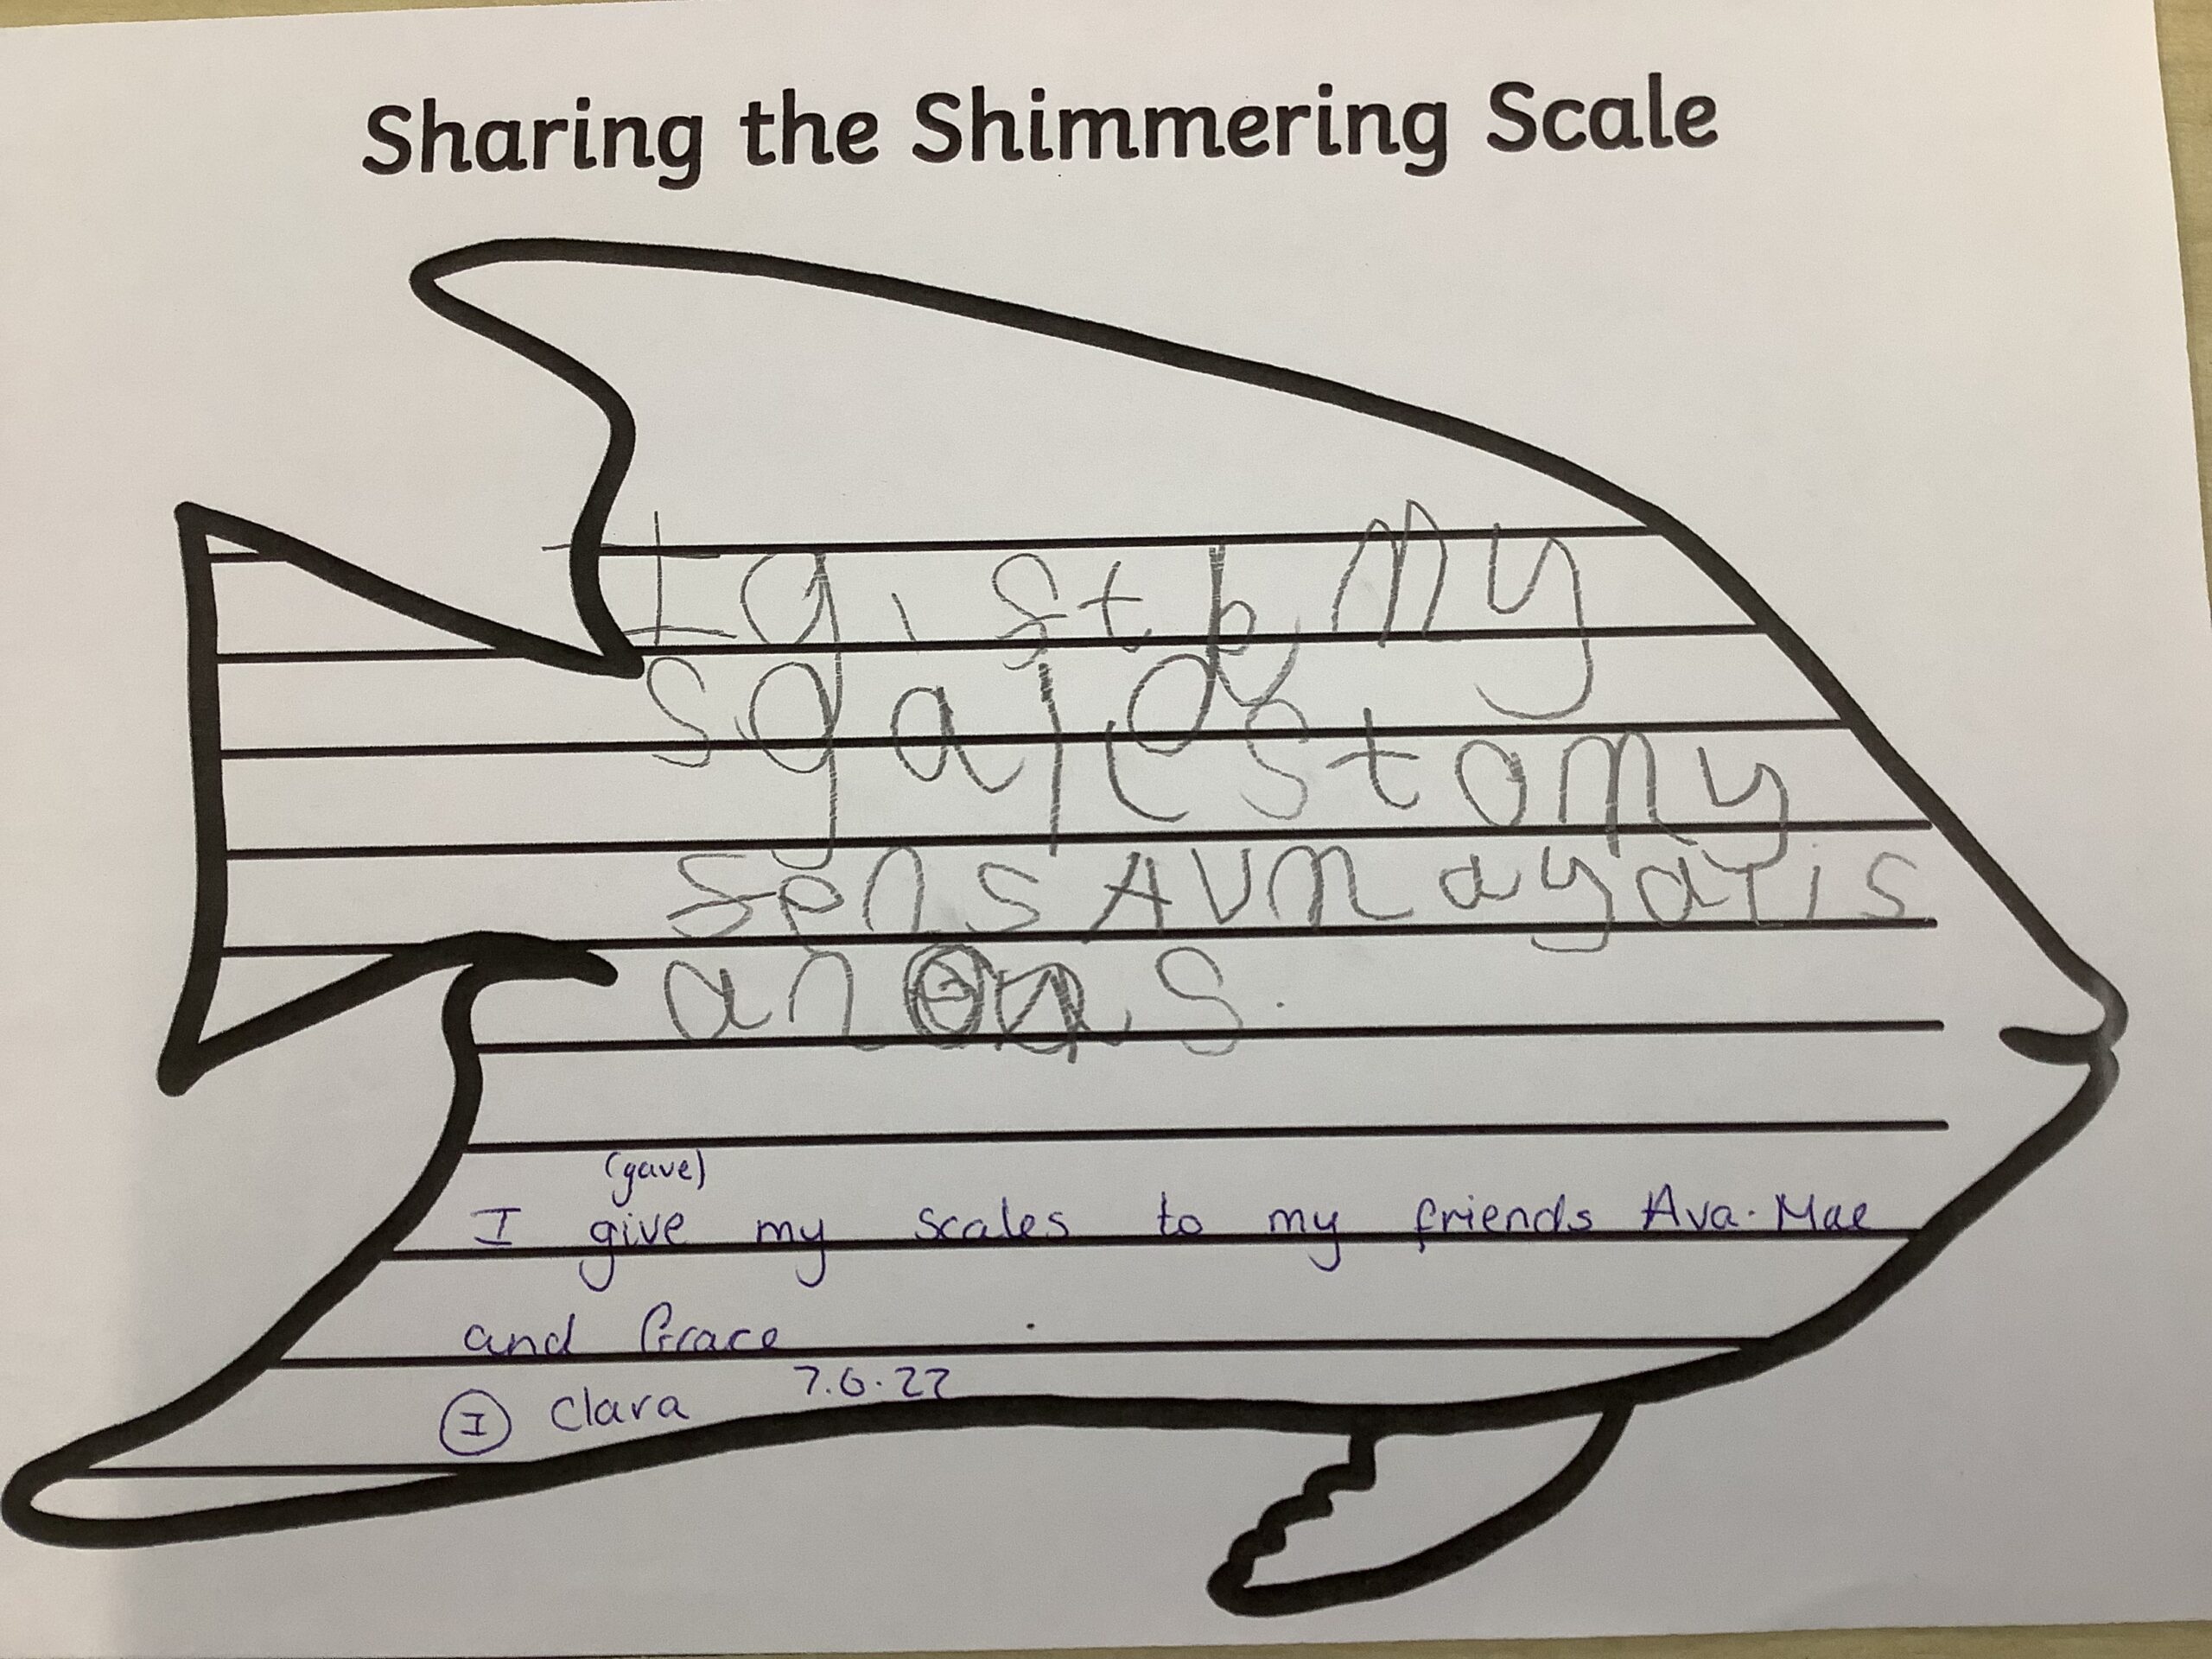 Sharing the Shimmering Scale
I g i f t my
s g a l e s t o m y
f e n s A V m a y a r i s
a n s.
(gave)
I give my scales to my friends Ava-Mae
and Grace
I Clara 7.6.22